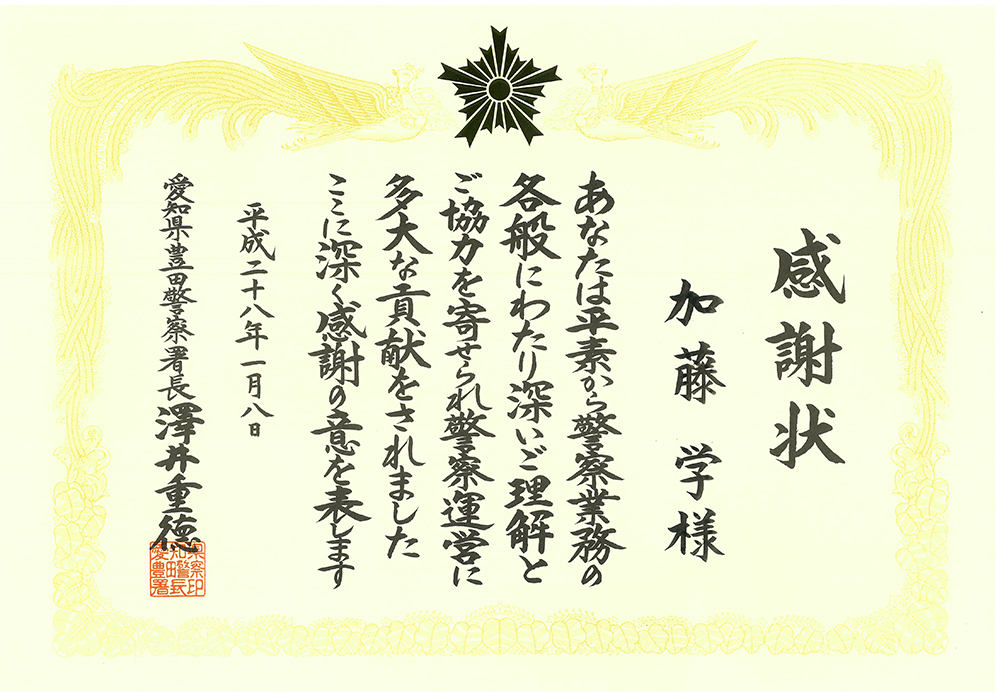 感謝状
加藤学様
あなたは平素から警察業務の
各般にわたり深いご理解と
ご協力を寄せられ警察運営に
多大な貢献をされました
ここに深く感謝の意を表します
平成二十八年一月八日
愛知県豊田警察署長 澤井重徳
愛知県豊田警察署長印